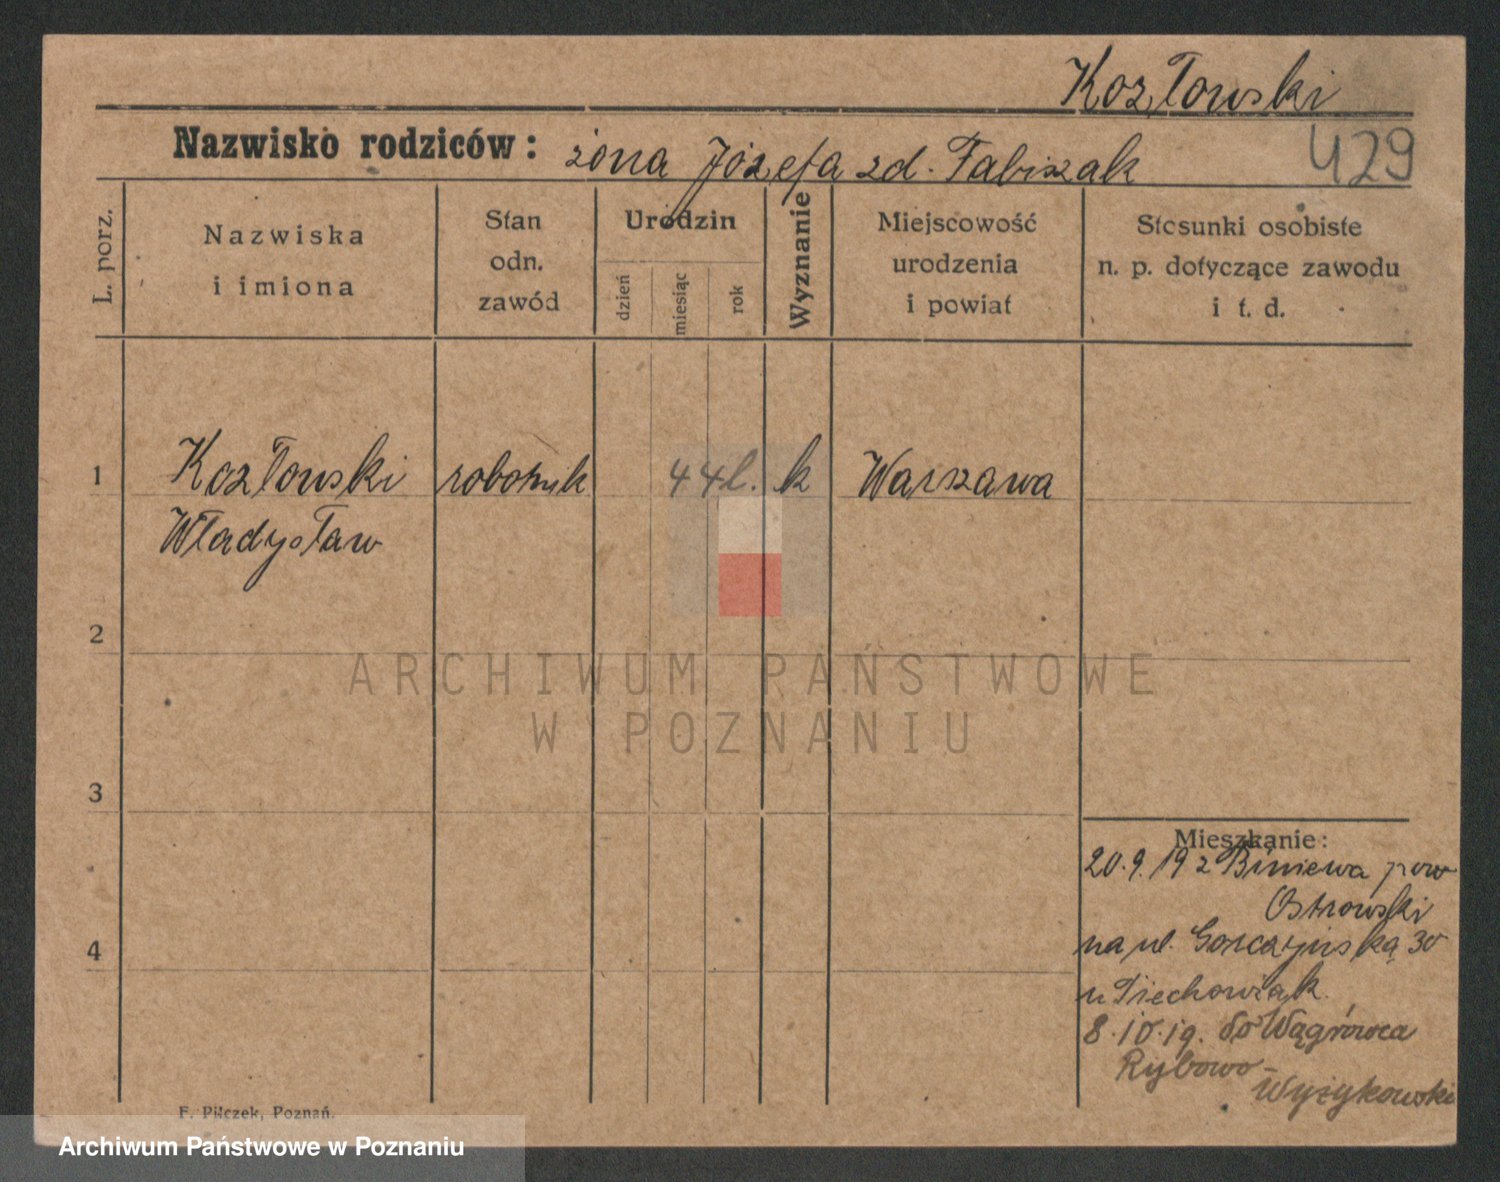 Kozłowski
Nazwisko rodziców: żona Józefa zd. Fabiszak
429
L. porz.
Nazwiska
i imiona
Stan
odn.
zawód
Urodzin
dzień
miesiąc
rok
Wyznanie
Miejscowość
urodzenia
i powiat
Stosunki osobiste
n. p. dotyczące zawodu
i t. d.
1
Kozłowski
Władysław
robotnik
44 l.
k
Warszawa
2
ARCHIWUM PAŃSTWOWE
W POZNANIU
3
4
Mieszkanie:
20.9.19 z Biniewa pow
Ostrowski
na ul. Gorczyńską 30
u Piechowiak
8.10.19. do Wągrówca
Rybowo-
Wyżykowski
F. Pilczek, Poznań.
Archiwum Państwowe w Poznaniu